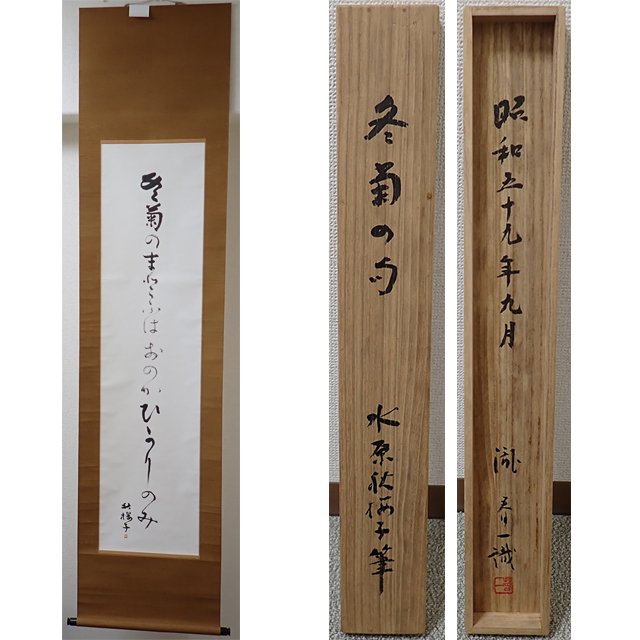 冬菊のまとふはおのがひかりのみ
秋櫻子
冬菊の句
水原秋櫻子筆
昭和五十九年九月
瀧春一識